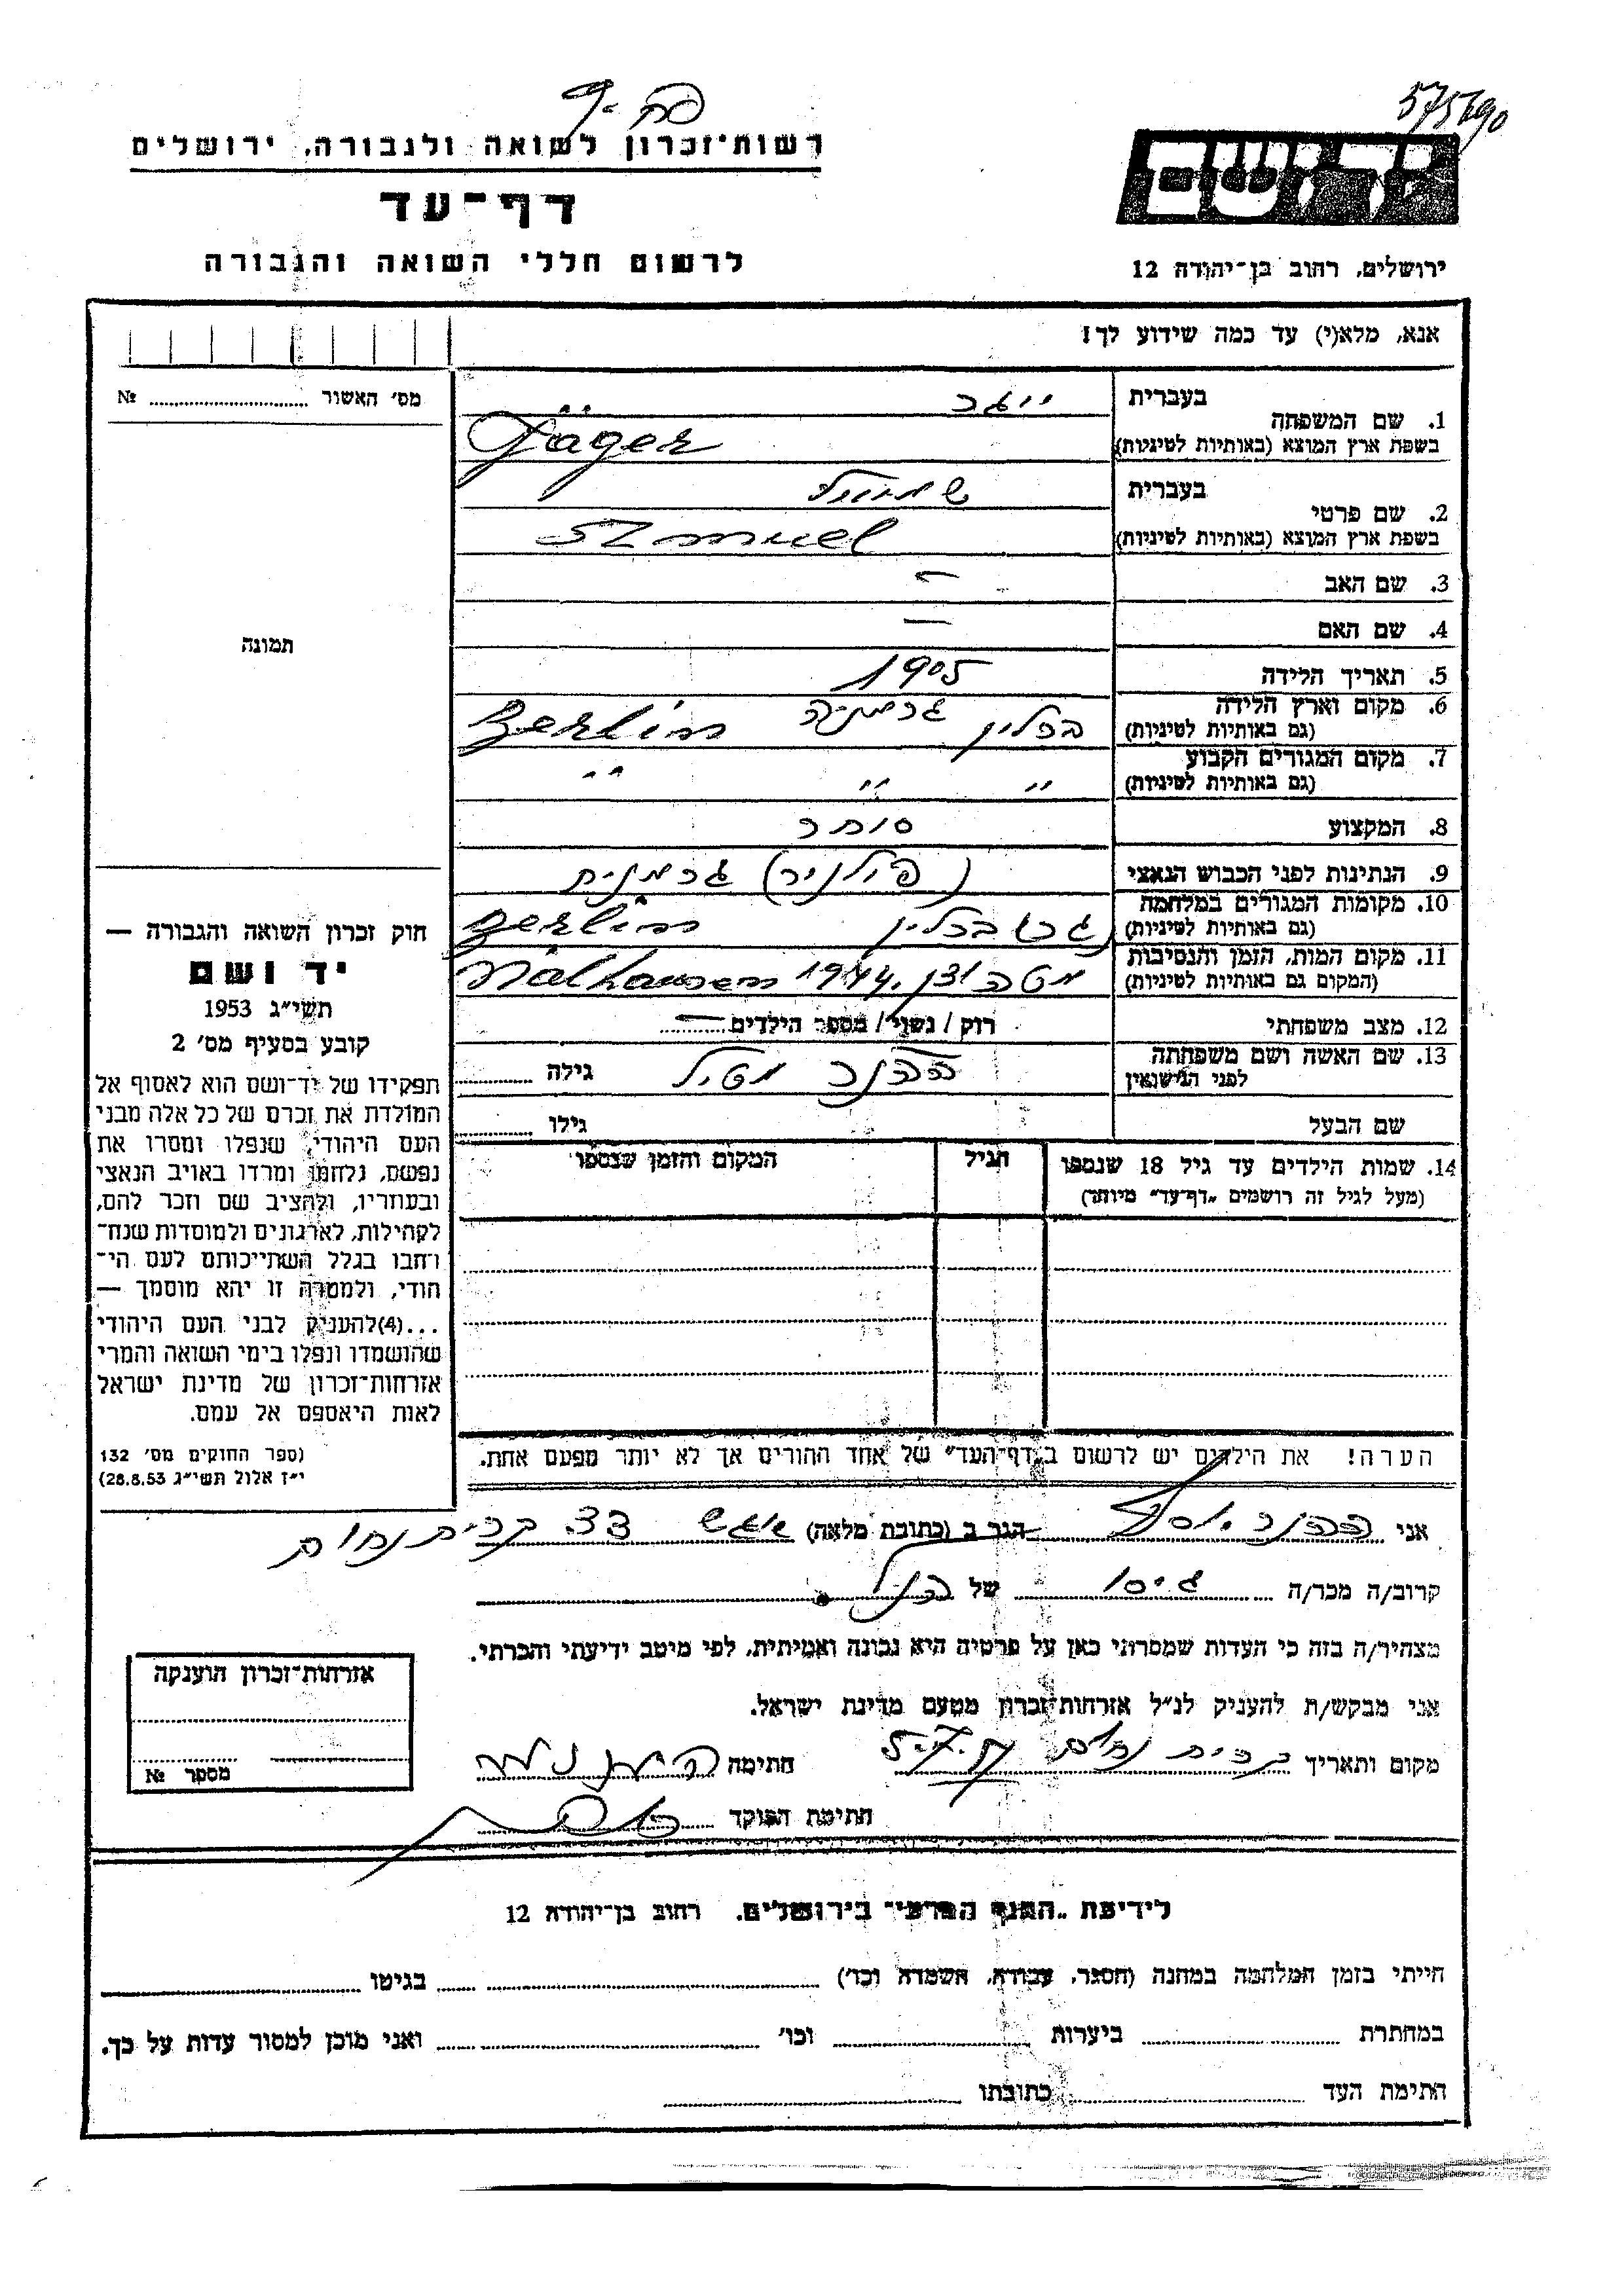 575690
רשות-זכרון לשואה ולגבורה, ירושלים
דף-עד
לרשום חללי השואה והגבורה
יד ושם
ירושלים, רחוב בן-יהודה 12
אנא, מלא(י) עד כמה שידוע לך!
מס׳ האשור № ........
1. שם המשפחה
בעברית ייגר
בשפת ארץ המוצא (באותיות לטיניות) Jäger
2. שם פרטי
בעברית שמואל
בשפת ארץ המוצא (באותיות לטיניות) Szmuel
3. שם האב –
4. שם האם –
5. תאריך הלידה 1905
6. מקום וארץ הלידה (גם באותיות לטיניות) ברלין גרמניה Berlin
7. מקום המגורים הקבוע (גם באותיות לטיניות) " " "
8. המקצוע סוחר
9. הנתינות לפני הכבוש הנאצי (פולניה) גרמנית
10. מקומות המגורים במלחמה (גם באותיות לטיניות) ברלין Berlin
11. מקום המות, הזמן והנסיבות (המקום גם באותיות לטיניות) 1944
12. מצב משפחתי רוק / נשוי / מספר הילדים –
13. שם האשה ושם משפחתה לפני הנישואין גילה ........
שם הבעל גילו ........
14. שמות הילדים עד גיל 18 שנספו
(מעל לגיל זה רושמים „דף-עד" מיוחד)
הגיל
המקום והזמן שנספו
הערה! את הילדים יש לרשום ב„דף-העד" של אחד ההורים אך לא יותר מפעם אחת.
תמונה
חוק זכרון השואה והגבורה —
יד ושם
תשי״ג 1953
קובע בסעיף מס׳ 2
תפקידו של יד-ושם הוא לאסוף אל
המולדת את זכרם של כל אלה מבני
העם היהודי, שנפלו ומסרו את
נפשם, נלחמו ומרדו באויב הנאצי
ובעוזריו, ולהציב שם וזכר להם,
לקהילות, לארגונים ולמוסדות שנח-
רבו בגלל השתייכותם לעם הי-
הודי, ולמטרה זו יהא מוסמך —
...(4)להעניק לבני העם היהודי
שהושמדו ונפלו בימי השואה והמרי
אזרחות-זכרון של מדינת ישראל
לאות היאספם אל עמם.
(ספר החוקים מס׳ 132
י״ז אלול תשי״ג 28.8.53)
אני הגר ב (כתובת מלאה) קרית נחום
קרוב/ה מכר/ה גיסו של הנ״ל
מצהיר/ה בזה כי העדות שמסרתי כאן על פרטיה היא נכונה ואמיתית, לפי מיטב ידיעתי והכרתי.
אני מבקש/ת להעניק לנ״ל אזרחות-זכרון מטעם מדינת ישראל.
מקום ותאריך קרית נחום חתימה
חתימת הפוקד
אזרחות-זכרון הוענקה
מספר №
לידיעת „הסניף המרכזי" בירושלים, רחוב בן-יהודה 12
הייתי בזמן המלחמה במחנה (הסגר, עבודה, השמדה וכו׳) ........ בגיטו ........
במחתרת ........ ביערות ........ וכו׳ ........ ואני מוכן למסור עדות על כך.
חתימת העד ........ כתובתו ........